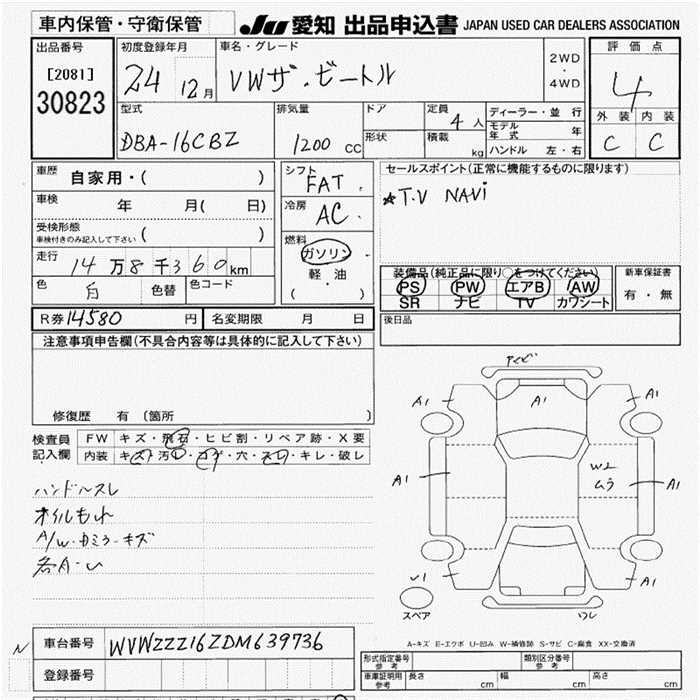 車内保管・守衛保管
JU 愛知 出品申込書 JAPAN USED CAR DEALERS ASSOCIATION
出品番号
[2081]
30823
初度登録年月
24 12月
車名・グレード
VWザ・ビートル
2WD
・
4WD
評価点
4
外装 内装
C C
型式
DBA-16CBZ
排気量
1200 CC
ドア
形状
定員
4人
積載
kg
ディーラー・並行
モデル年式 年
ハンドル 左・右
車歴
自家用・( )
車検 年 月( 日)
受検形態
車検付きのみ記入して下さい ( )
走行 14万8千360km
色 白 色替 色コード
シフト
FAT
冷房
AC
燃料
ガソリン
軽・油
( )
セールスポイント(正常に機能するものに限ります)
★T.V NAVi
装備品(純正品に限り○をつけてください)
PS PW エアB AW
SR ナビ TV カワシート
新車保証書
有・無
R券 14580 円 名変期限 月 日
後日品
注意事項申告欄(不具合内容等は具体的に記入して下さい)
修復歴 有(箇所 )
検査員
記入欄
FW キズ・飛石・ヒビ割・リペア跡・X要
内装 キズ・汚レ・コゲ・穴・スレ・キレ・破レ
ハンドルスレ
オイルもれ
A/W・カミラーキズ
各A・U
A1
A1
A1
A1
A1
W2
ムラ
A1
A1
スペア
A-キズ E-エクボ U-凹み W-補修跡 S-サビ C-腐食 XX-交換済
N
車台番号 WVWZZZ16ZDM639736
登録番号
形式指定番号
参考
類別区分番号
参考
車庫証明用
参考
長さ cm 幅 cm 高さ cm